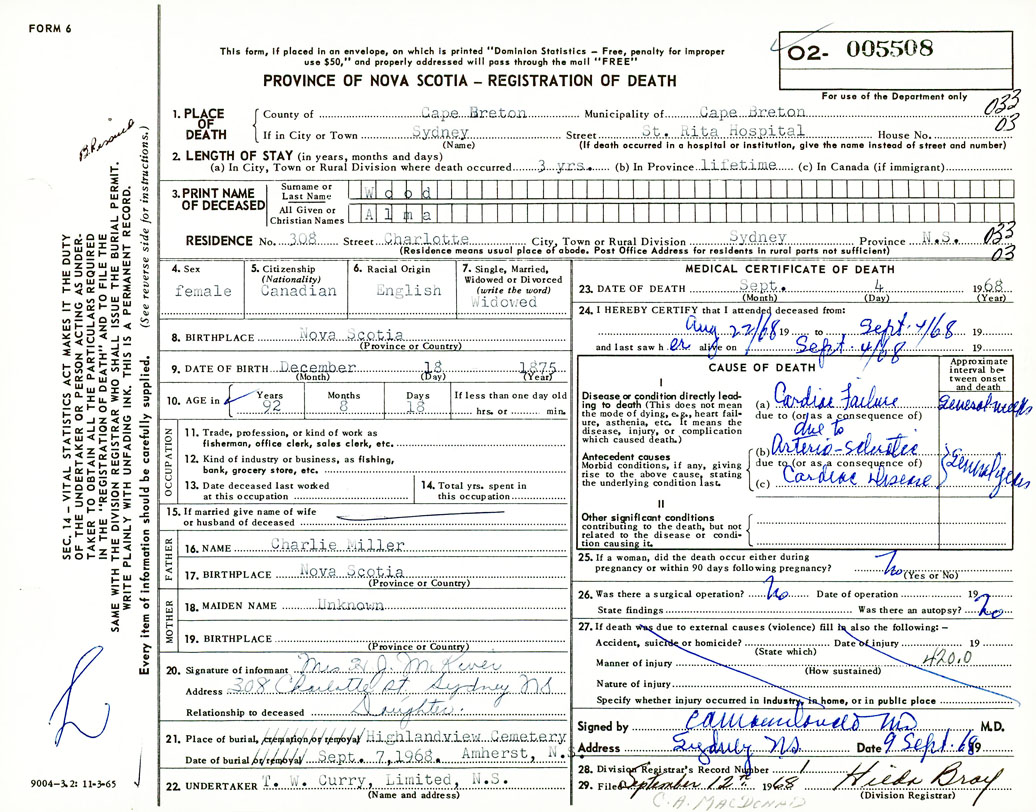 FORM 6
This form, if placed in an envelope, on which is printed "Dominion Statistics – Free, penalty for improper
use $50," and properly addressed will pass through the mail "FREE"
PROVINCE OF NOVA SCOTIA – REGISTRATION OF DEATH
O2- 005508
For use of the Department only
033
03
SEC. 14 – VITAL STATISTICS ACT MAKES IT THE DUTY
OF THE UNDERTAKER OR PERSON ACTING AS UNDER-
TAKER TO OBTAIN ALL THE PARTICULARS REQUIRED
IN THE "REGISTRATION OF DEATH" AND TO FILE THE
SAME WITH THE DIVISION REGISTRAR WHO SHALL ISSUE THE BURIAL PERMIT.
WRITE PLAINLY WITH UNFADING INK. THIS IS A PERMANENT RECORD.
Every item of information should be carefully supplied. (See reverse side for instructions.)
1. PLACE OF DEATH
County of Cape Breton Municipality of Cape Breton
If in City or Town Sydney Street St. Rita Hospital House No.
(Name) (If death occurred in a hospital or institution, give the name instead of street and number)
2. LENGTH OF STAY (in years, months and days)
(a) In City, Town or Rural Division where death occurred 3 yrs. (b) In Province lifetime (c) In Canada (if immigrant)
3. PRINT NAME OF DECEASED
Surname or Last Name Wood
All Given or Christian Names Alma
RESIDENCE No. 308 Street Charlotte City, Town or Rural Division Sydney Province N.S.
(Residence means usual place of abode. Post Office Address for residents in rural parts not sufficient)
033
03
4. Sex
female
5. Citizenship
(Nationality)
Canadian
6. Racial Origin
English
7. Single, Married,
Widowed or Divorced
(write the word)
Widowed
8. BIRTHPLACE Nova Scotia
(Province or Country)
9. DATE OF BIRTH December 18 1875
(Month) (Day) (Year)
10. AGE in Years Months Days If less than one day old
92 8 18 hrs. or min.
OCCUPATION
11. Trade, profession, or kind of work as
fisherman, office clerk, sales clerk, etc.
12. Kind of industry or business, as fishing,
bank, grocery store, etc.
13. Date deceased last worked
at this occupation
14. Total yrs. spent in
this occupation
15. If married give name of wife
or husband of deceased
FATHER
16. NAME Charlie Miller
17. BIRTHPLACE Nova Scotia
(Province or Country)
MOTHER
18. MAIDEN NAME Unknown
19. BIRTHPLACE
(Province or Country)
20. Signature of informant Mrs H J. McKiver
Address 308 Charlotte St. Sydney NS
Relationship to deceased Daughter.
21. Place of burial, cremation or removal Highlandview Cemetery
Date of burial or removal Sept. 7,1968. Amherst, N.S.
22. UNDERTAKER T. W. Curry, Limited, N.S.
(Name and address)
MEDICAL CERTIFICATE OF DEATH
23. DATE OF DEATH Sept. 4 1968
(Month) (Day) (Year)
24. I HEREBY CERTIFY that I attended deceased from:
Aug 22/68 19 to Sept. 4/68 19
and last saw h er alive on Sept 4/68 19
CAUSE OF DEATH
Approximate
interval be-
tween onset
and death
I
Disease or condition directly lead-
ing to death (This does not mean
the mode of dying, e.g., heart fail-
ure, asthenia, etc. It means the
disease, injury, or complication
which caused death.)
(a) Cardiac Failure
due to (or as a consequence of)
due to
Antecedent causes
Morbid conditions, if any, giving
rise to the above cause, stating
the underlying condition last.
(b) Arterio-sclerotic
due to (or as a consequence of)
(c) Cardiac Disease
II
Other significant conditions
contributing to the death, but not
related to the disease or condi-
tion causing it.
25. If a woman, did the death occur either during
pregnancy or within 90 days following pregnancy? no
(Yes or No)
26. Was there a surgical operation? No Date of operation 19
State findings Was there an autopsy? No
27. If death was due to external causes (violence) fill in also the following:–
Accident, suicide or homicide? Date of injury 19
(State which)
420.0
Manner of injury
(How sustained)
Nature of injury
Specify whether injury occurred in industry, in home, or in public place
Signed by M.D.
Address Sydney NS Date 9 Sept. 68 19
28. Division Registrar's Record Number 1
29. Filed September 12th 1968 Hilda Bray
(Division Registrar)
C. A. MACDONALD
9004–3.2: 11-3-65